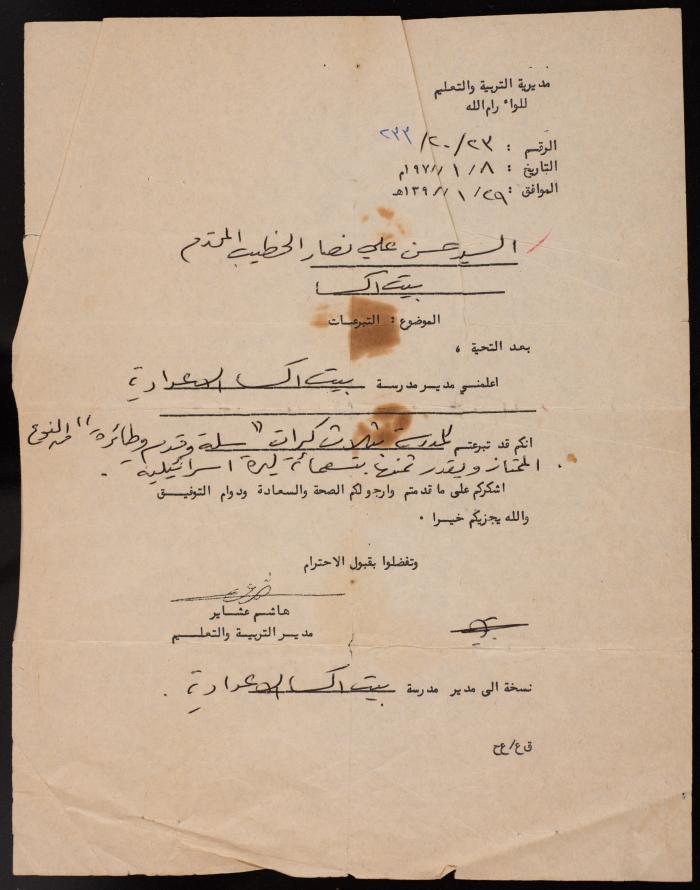 مديرية التربية والتعليم
للواء رام الله
الرقم : ٢٣/٢٠/ ٢٣٣
التاريخ : ٨/ ١ /١٩٧م
الموافق : ٢٩/ ١ /١٣٩هـ
السيد حسن علي نصار الخطيب المحترم
بيت اكسا
الموضوع : التبرعات
بعد التحية ،
اعلمني مدير مدرسة بيت اكسا الاعدادية
انكم قد تبرعتم للمدرسة بثلاث كرات "سلة وقدم وطائرة" من النوع
الممتاز ويقدر ثمنها بتسعمائة ليرة اسرائيلية .
اشكركم على ما قدمتم وارجو لكم الصحة والسعادة ودوام التوفيق
والله يجزيكم خيرا .
وتفضلوا بقبول الاحترام
هاشم عشاير
مدير التربية والتعليم
نسخة الى مدير مدرسة بيت اكسا الاعدادية .
ق ع/ع ح